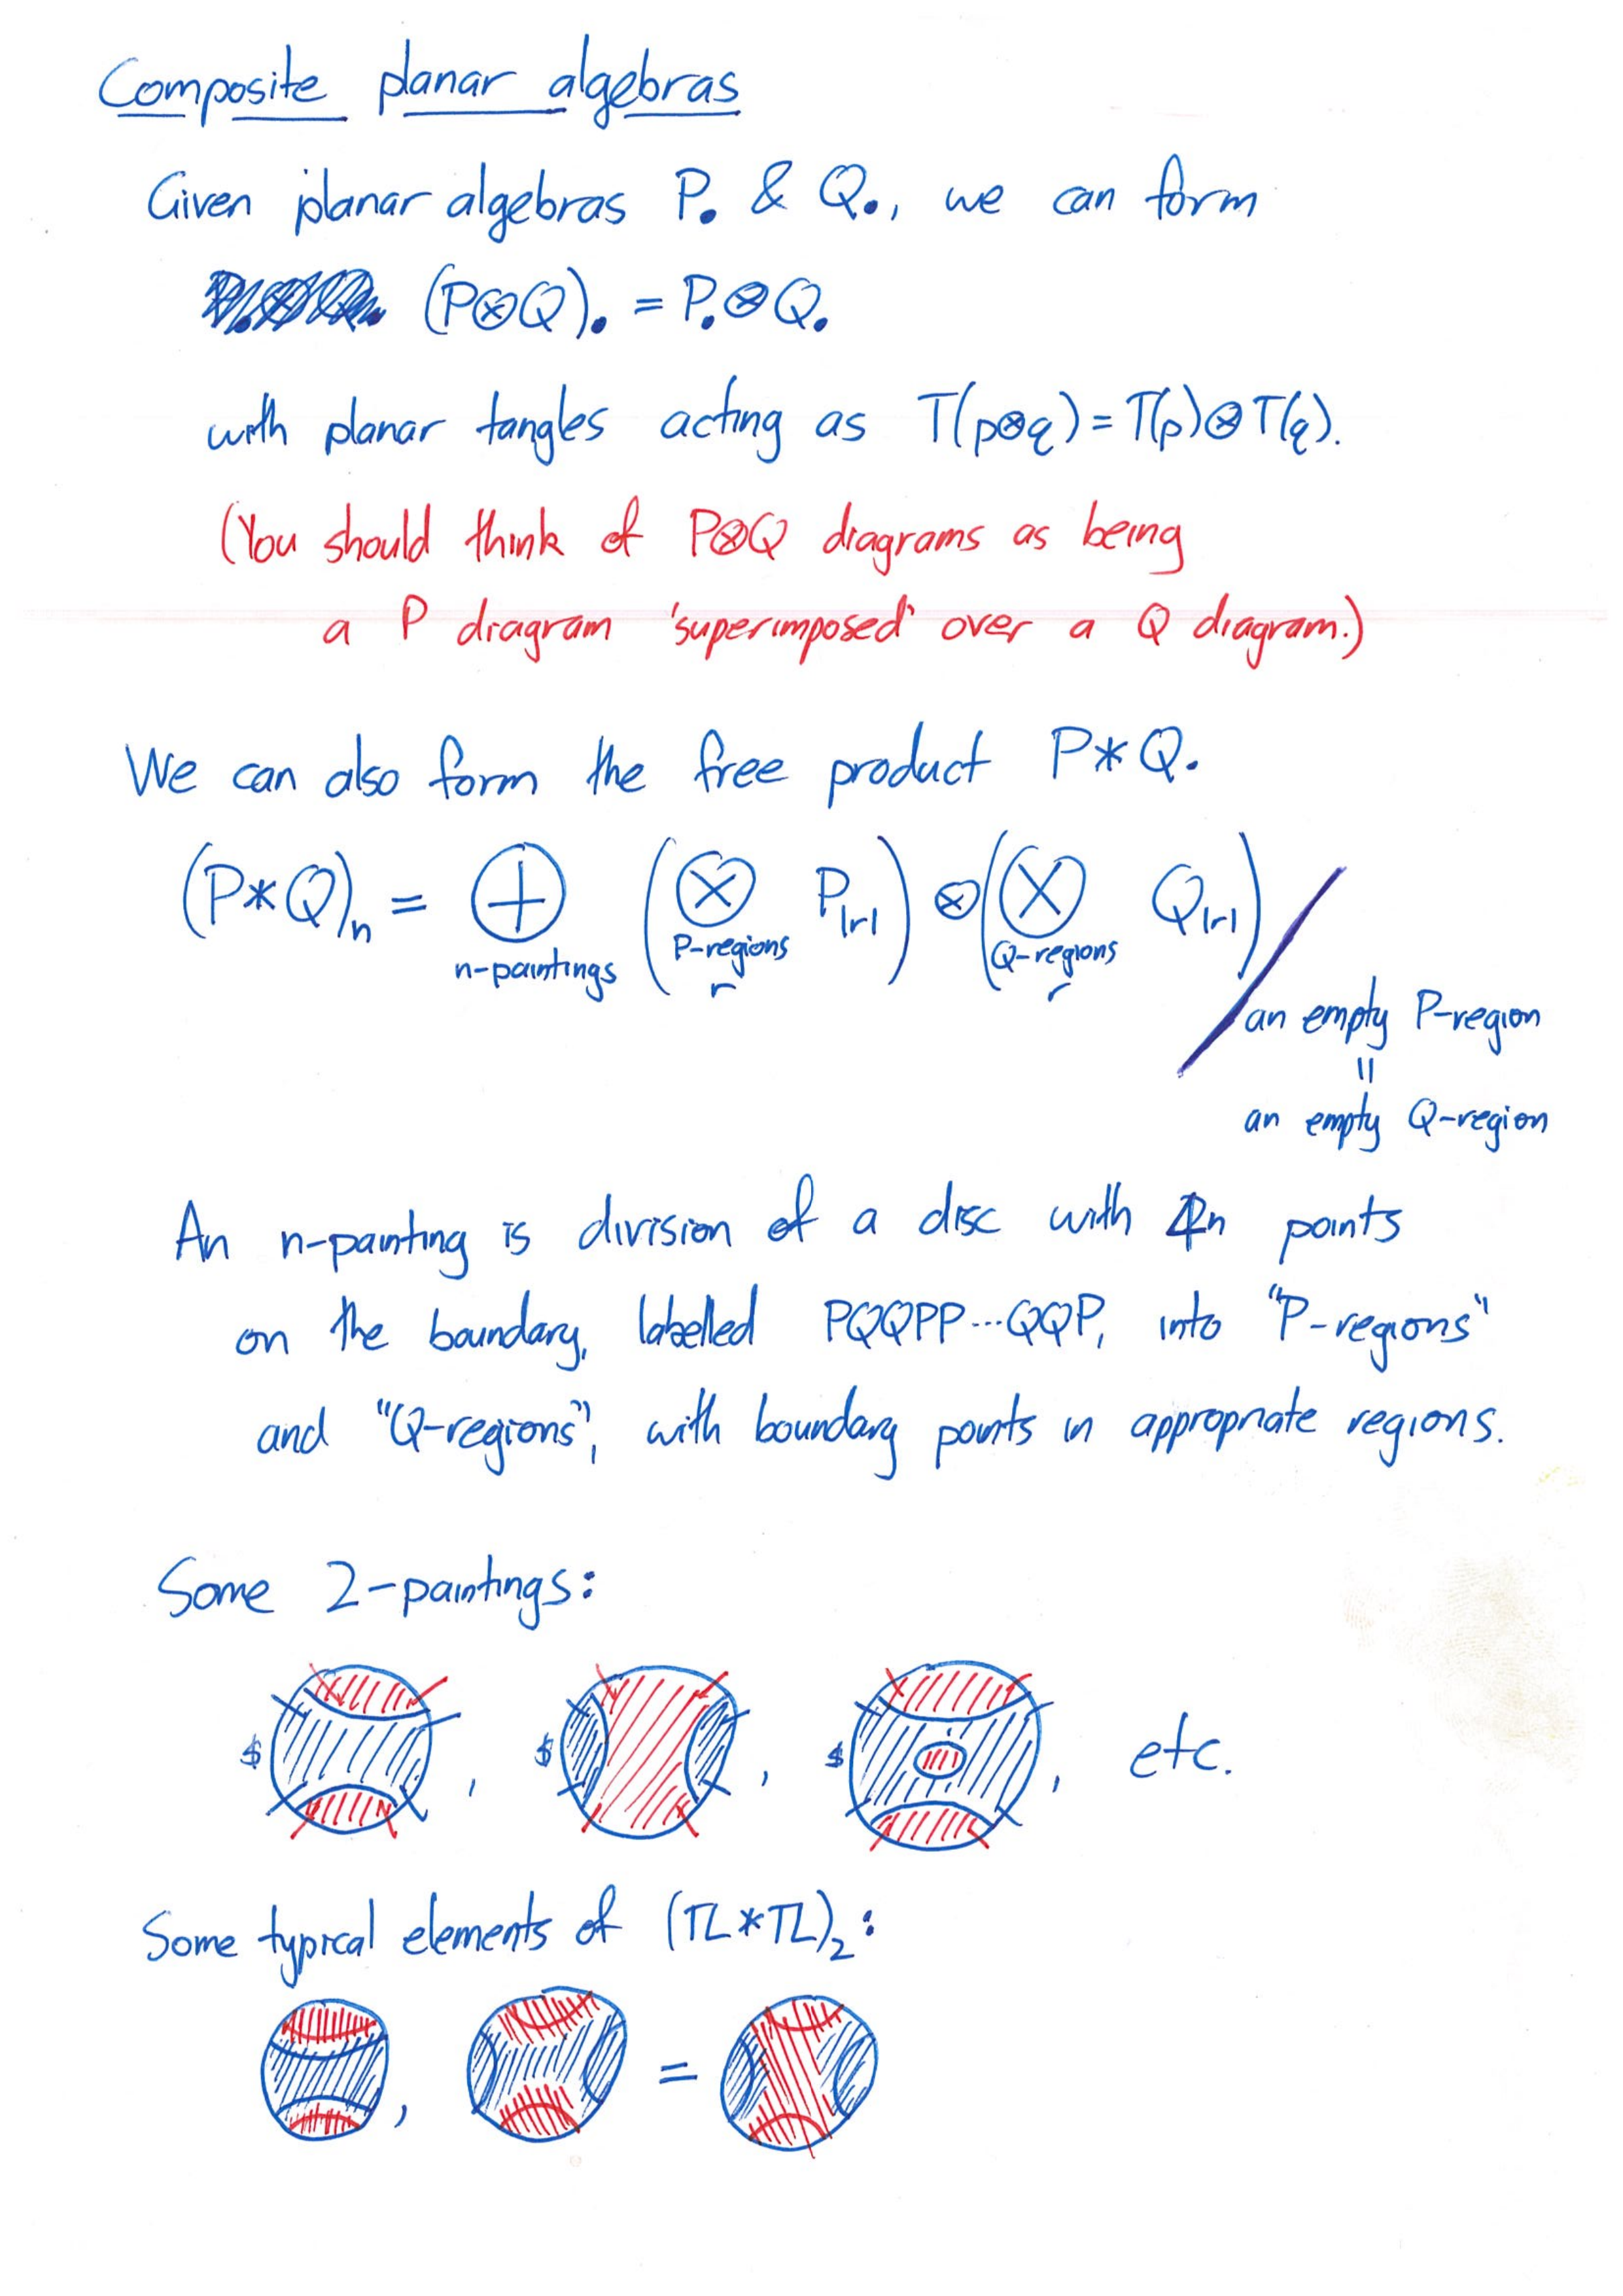 Composite planar algebras
Given planar algebras P• & Q•, we can form
(P⊗Q)• = P•⊗Q•
with planar tangles acting as T(p⊗q)=T(p)⊗T(q).
(You should think of P⊗Q diagrams as being
a P diagram 'superimposed' over a Q diagram.)
We can also form the free product P*Q.
(P*Q)n = ⊕ (⊗ P|r|) ⊗ (⊗ Q|r|) /
n-paintings P-regions r Q-regions r
an empty P-region
=
an empty Q-region
An n-painting is division of a disc with 4n points
on the boundary, labelled PQQPP...QQP, into "P-regions"
and "Q-regions", with boundary points in appropriate regions.
Some 2-paintings:
$ , $ , $ , etc.
Some typical elements of (TL*TL)2:
, =